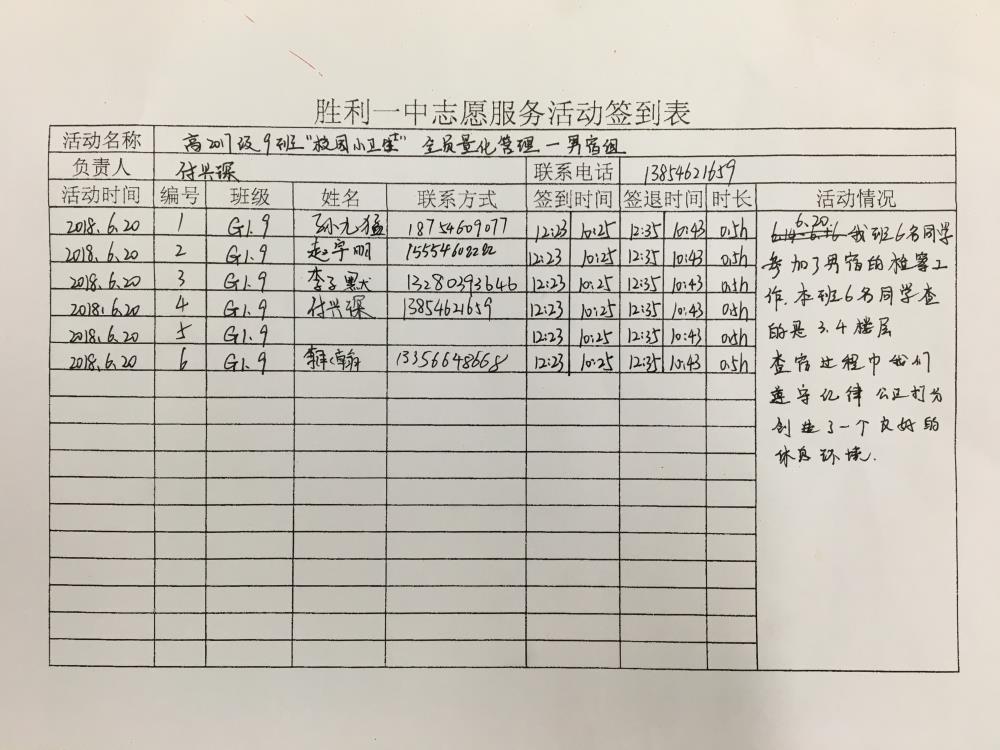 胜利一中志愿服务活动签到表
活动名称 高2017级9班"校园小卫生" 全员量化管理一男宿组
负责人 付兴琛 联系电话 13854621659
活动时间 编号 班级 姓名 联系方式 签到时间 签退时间 时长 活动情况
2018.6.20 1 G1.9 孙 猛 18754609077 12:23 10:25 12:35 10:43 0.5h
2018.6.20 2 G1.9 赵宇明 12:23 10:25 12:35 10:43 0.5h
2018.6.20 3 G1.9 李子默 13280393646 12:23 10:25 12:35 10:43 0.5h
2018.6.20 4 G1.9 付兴琛 13854621659 12:23 10:25 12:35 10:43 0.5h
2018.6.20 5 G1.9 12:23 10:25 12:35 10:43 0.5h
2018.6.20 6 G1.9 13356648668 12:23 10:25 12:35 10:43 0.5h
6.20
我班6名同学
参加了男宿的检察工
作.本班6名同学查
的是3.4楼层
查宿过程中我们
遵守纪律公正打分
创造了一个良好的
休息环境.